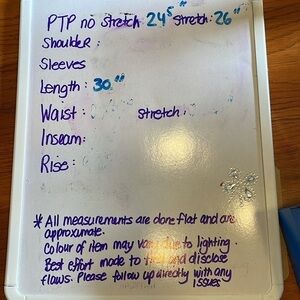 PTP no stretch 24.5" Stretch: 26"
Shoulder:
Sleeves
Length: 30"
Waist: stretch:
Inseam:
Rise:
* All measurements are done flat and are
approximate.
Colour of item may vary due to lighting.
Best effort made to find and disclose
flaws. Please follow up directly with any
issues